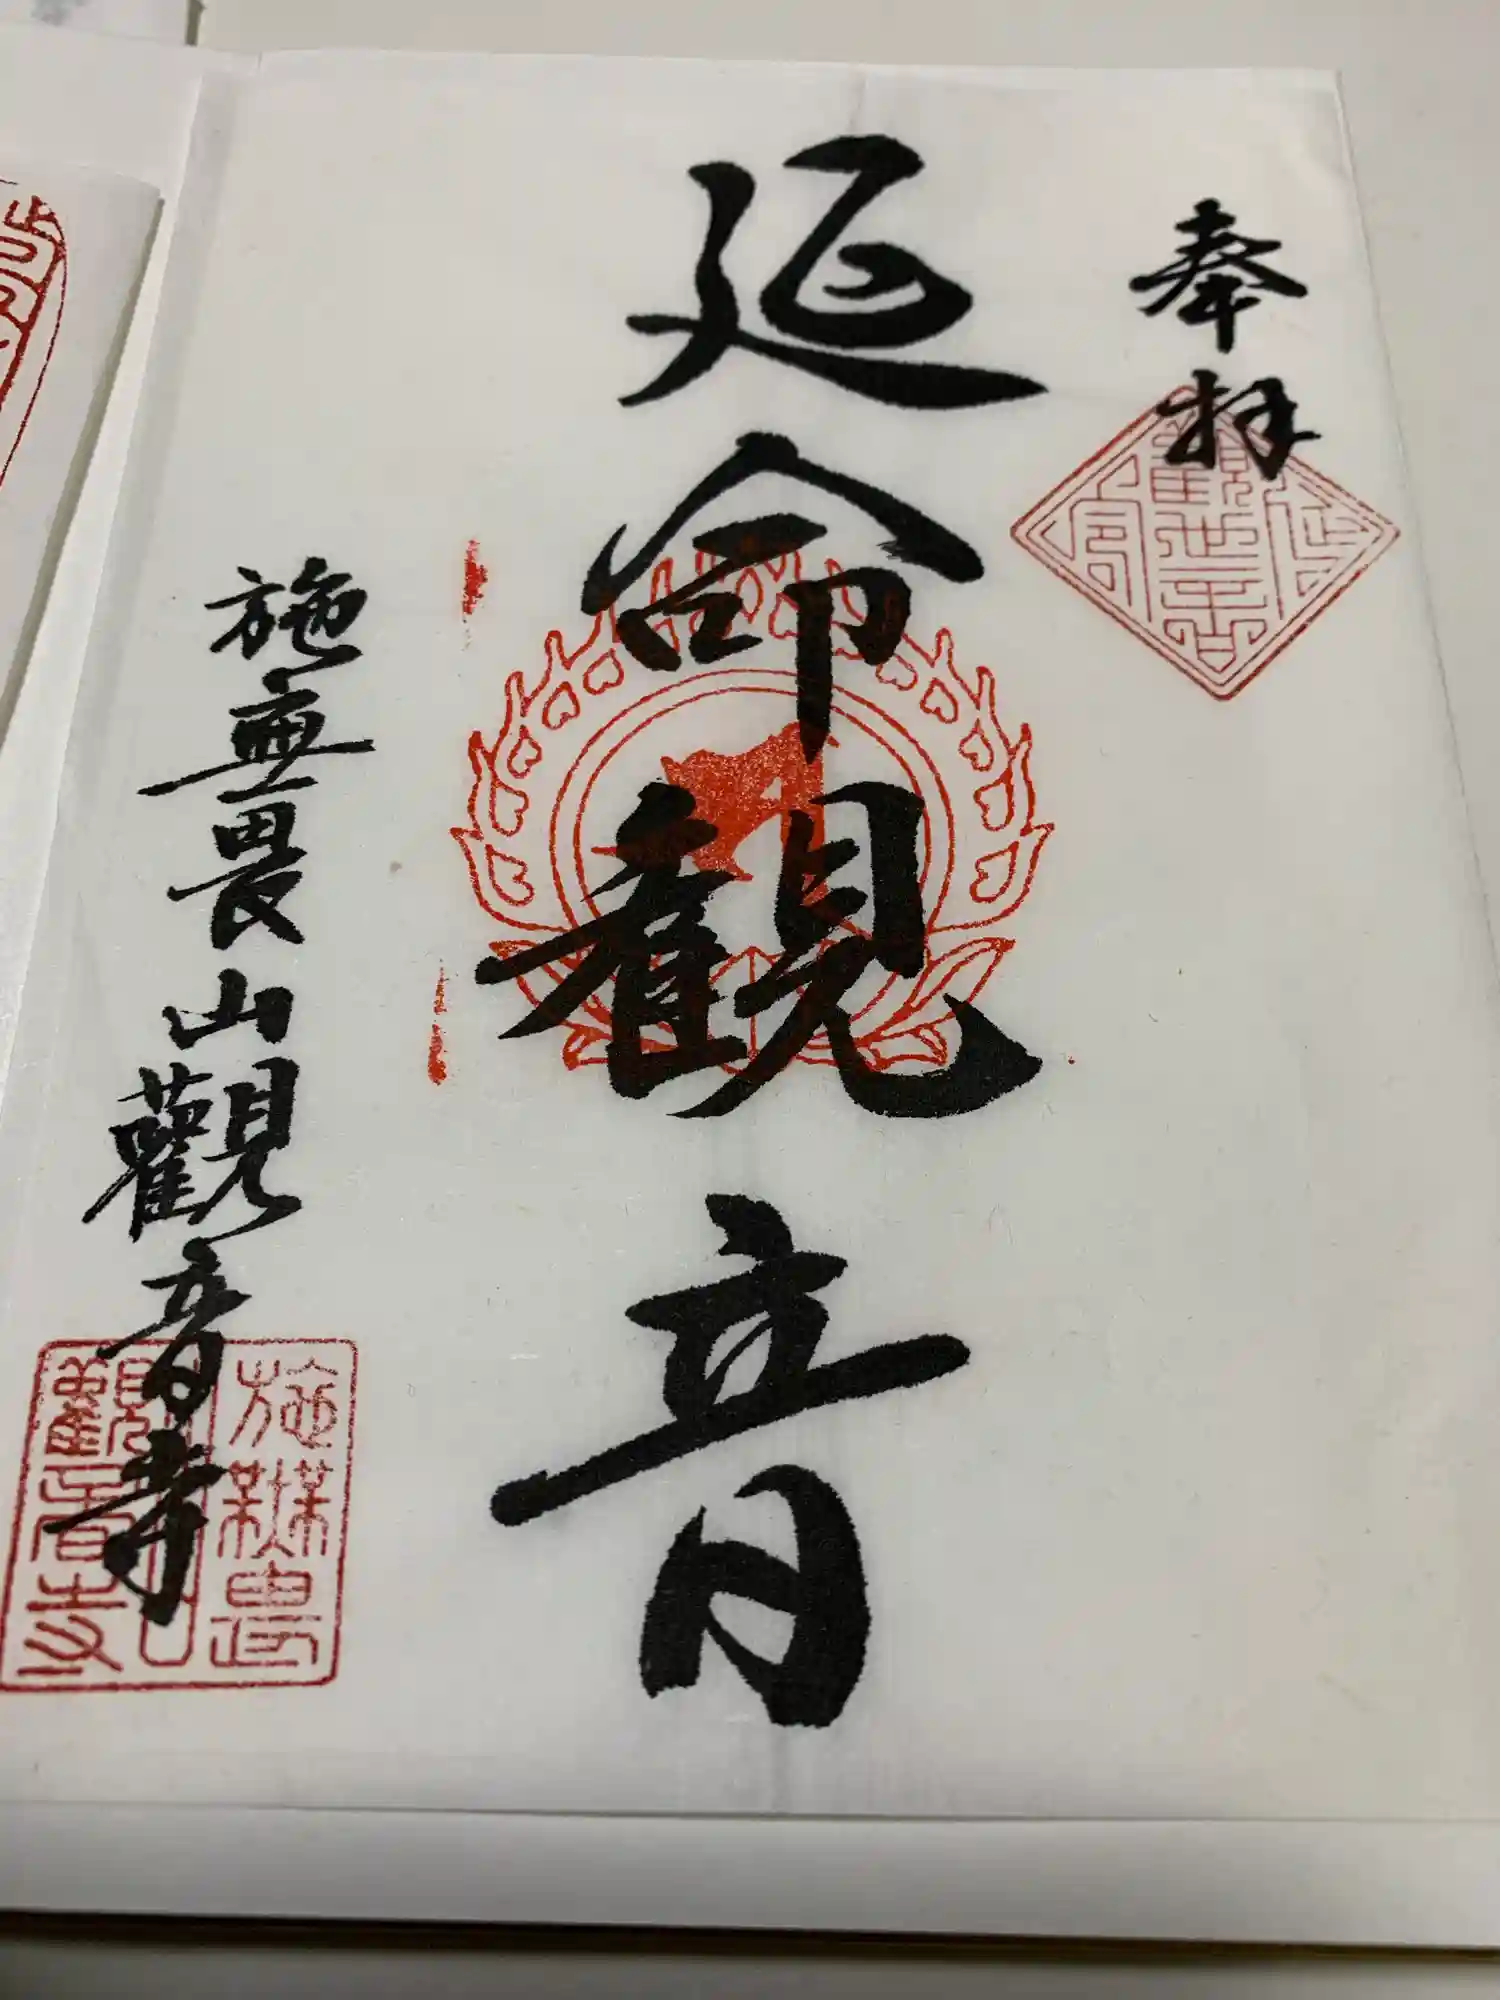 奉拝
延命観音
施無畏山觀音寺
施無畏山
觀音寺